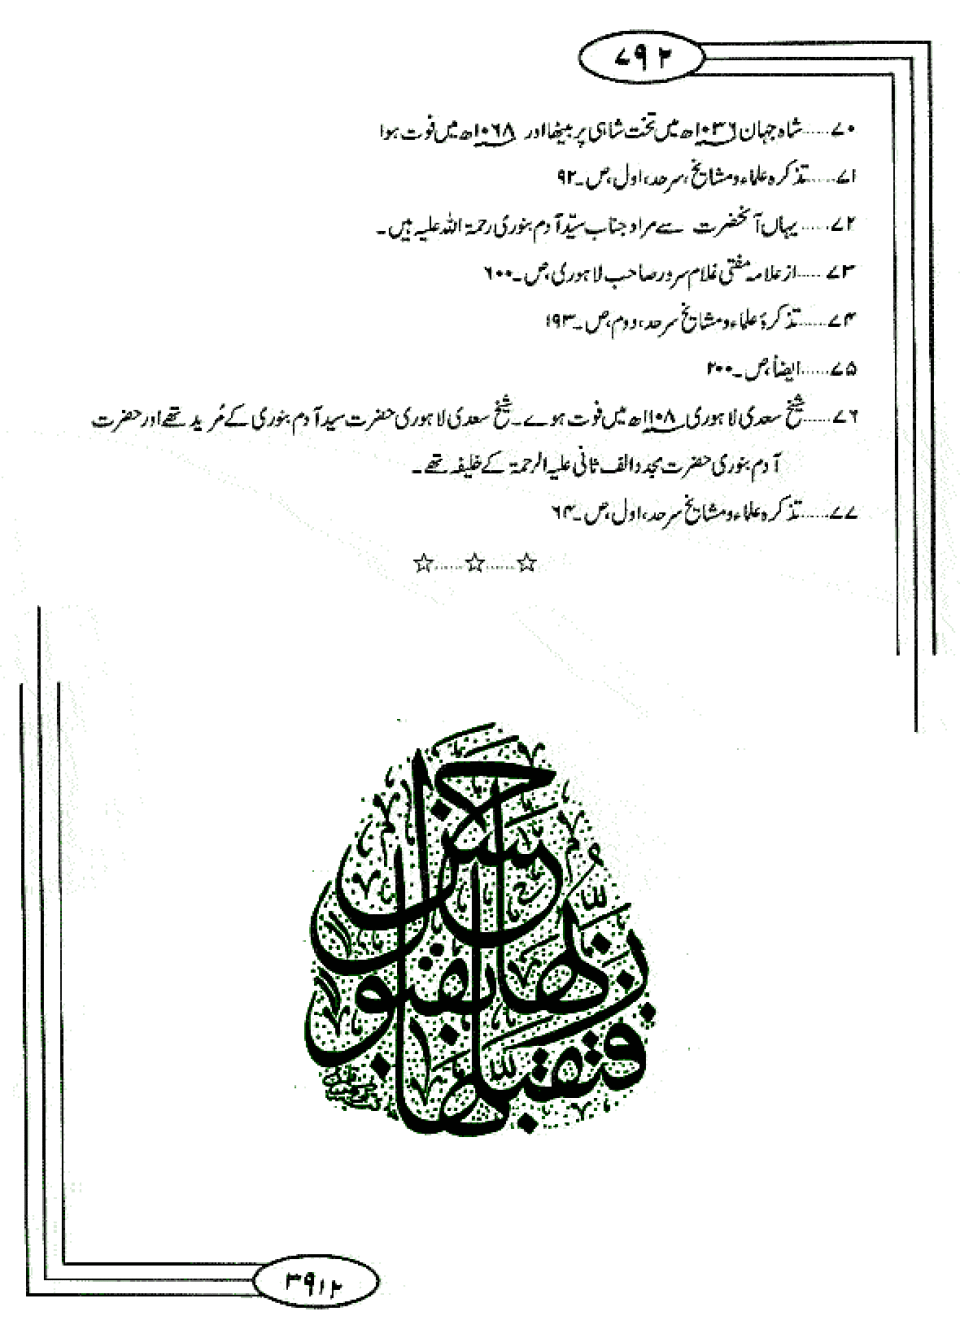 ۷۹۲
۷۰.....شاہ جہان ۱۰۳۶ھ میں تخت شاہی پر بیٹھا اور ۱۰۶۸ھ میں فوت ہوا
۷۱.....تذکرہ علماء و مشایخ، سرحد، اول، ص۔۹۲
۷۲.....یہاں آنحضرت سے مراد جناب سیّد آدم بنوری رحمۃ اللہ علیہ ہیں۔
۷۳.....از علامہ مفتی غلام سرور صاحب لاہوری، ص۔۶۰۰
۷۴.....تذکرۂ علماء و مشایخ سرحد، دوم، ص۔۱۹۳
۷۵.....ایضاً، ص۔۲۰۰
۷۶.....شیخ سعدی لاہوری ۱۱۰۸ھ میں فوت ہوے۔ شیخ سعدی لاہوری حضرت سید آدم بنوری کے مُرید تھے اور حضرت
آدم بنوری حضرت مجدد الف ثانی علیہ الرحمۃ کے خلیفہ تھے۔
۷۷.....تذکرہ علماء و مشایخ سرحد، اول، ص۔۶۴
☆.....☆.....☆
فتقبلها ربها بقبول حسن
۳۹۱۲